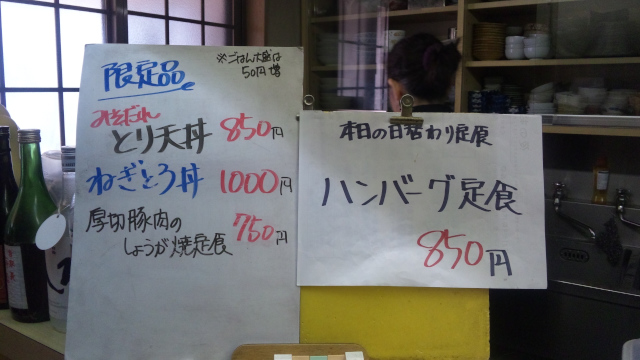 限定品
※ごはん大盛は
50円増
みそだれ
とり天丼 850円
ねぎとろ丼 1000円
厚切豚肉の
しょうが焼定食 750円
本日の日替わり定食
ハンバーグ定食
850円